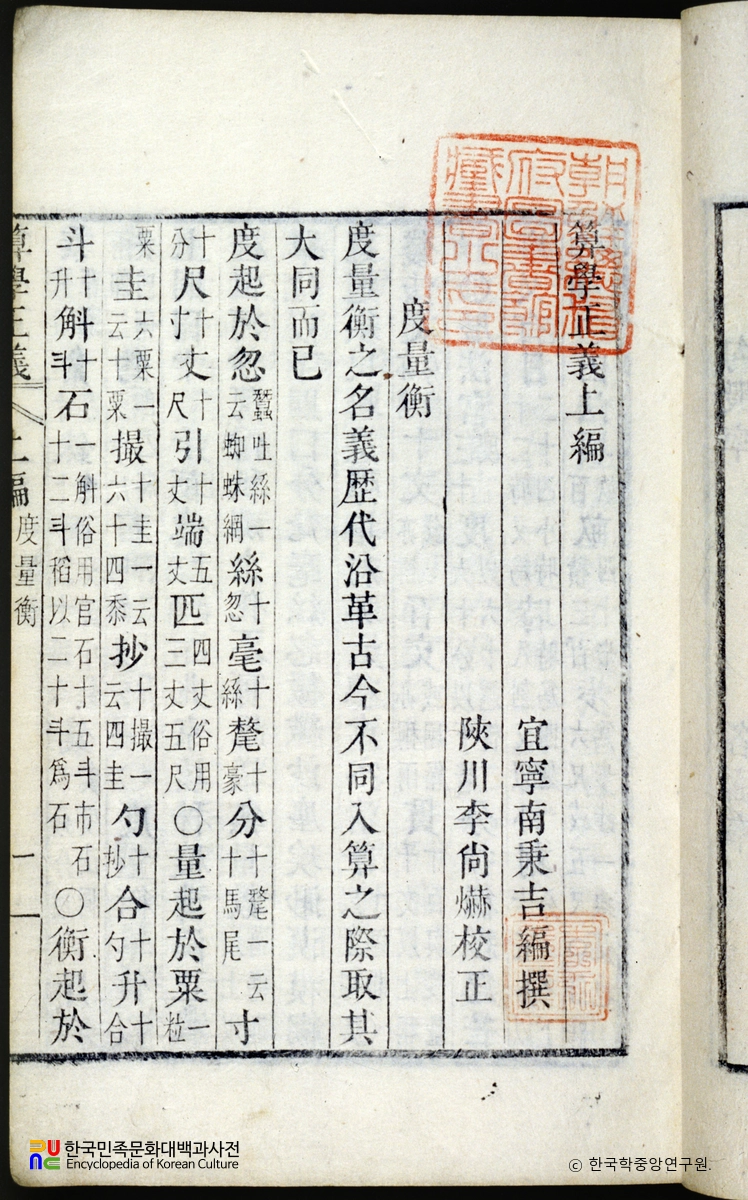 朝鮮總督府圖書館藏書之印
算學正義上編
宜寧南秉吉編撰
陜川李尙爀校正
度量衡
度量衡之名義歷代沿革古今不同入算之際取其
大同而已
度起於忽蠶吐絲一云蜘蛛網絲十忽毫十絲氂十豪分十氂一云十馬尾寸
十分尺十寸丈十尺引十丈端五丈匹四丈俗用三丈五尺○量起於粟一粒
粟圭六粟一云十粟撮十圭一云六十四黍抄十撮一云四圭勺十抄合十勺升十合
斗十升斛十斗石一斛俗用官石十五斗市石十二斗稻以二十斗爲石○衡起於
算學正義 上編 度量衡 一
한국민족문화대백과사전
Encyclopedia of Korean Culture
© 한국학중앙연구원.